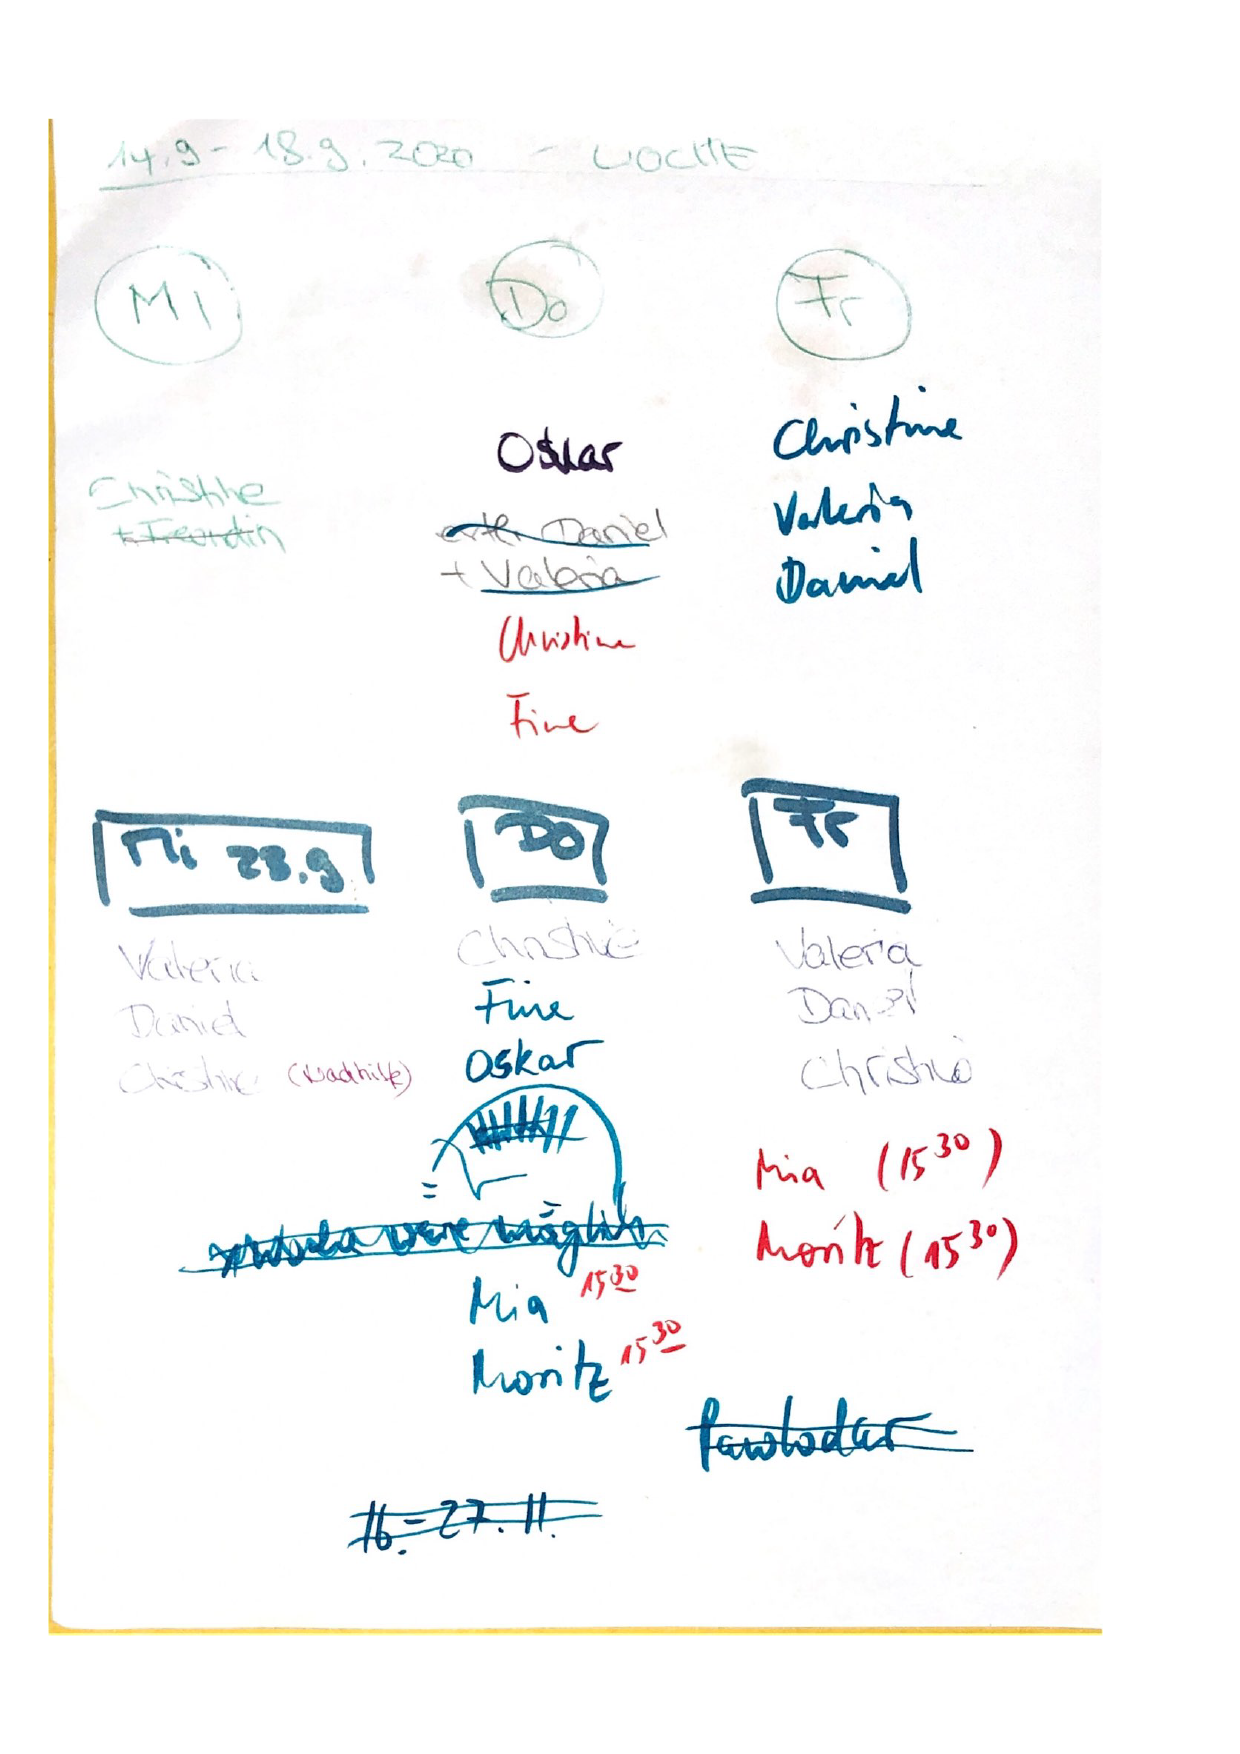 14.9 - 18.9.2020 - WOCHE
Mi
Do
Fr
Christine
+ Freundin
Oskar
evtl. Daniel
+ Valeria
Christine
Fine
Christine
Valeria
Daniel
Mi 23.9
Do
Fr
Valeria
Daniel
Christine (Nachhilfe)
Christine
Fine
Oskar
wäre möglich
Mia 15 30
Moritz 15 30
Valeria
Daniel
Christine
Mia (15 30)
Moritz (15 30)
Pawlodar
16. - 27. 11.